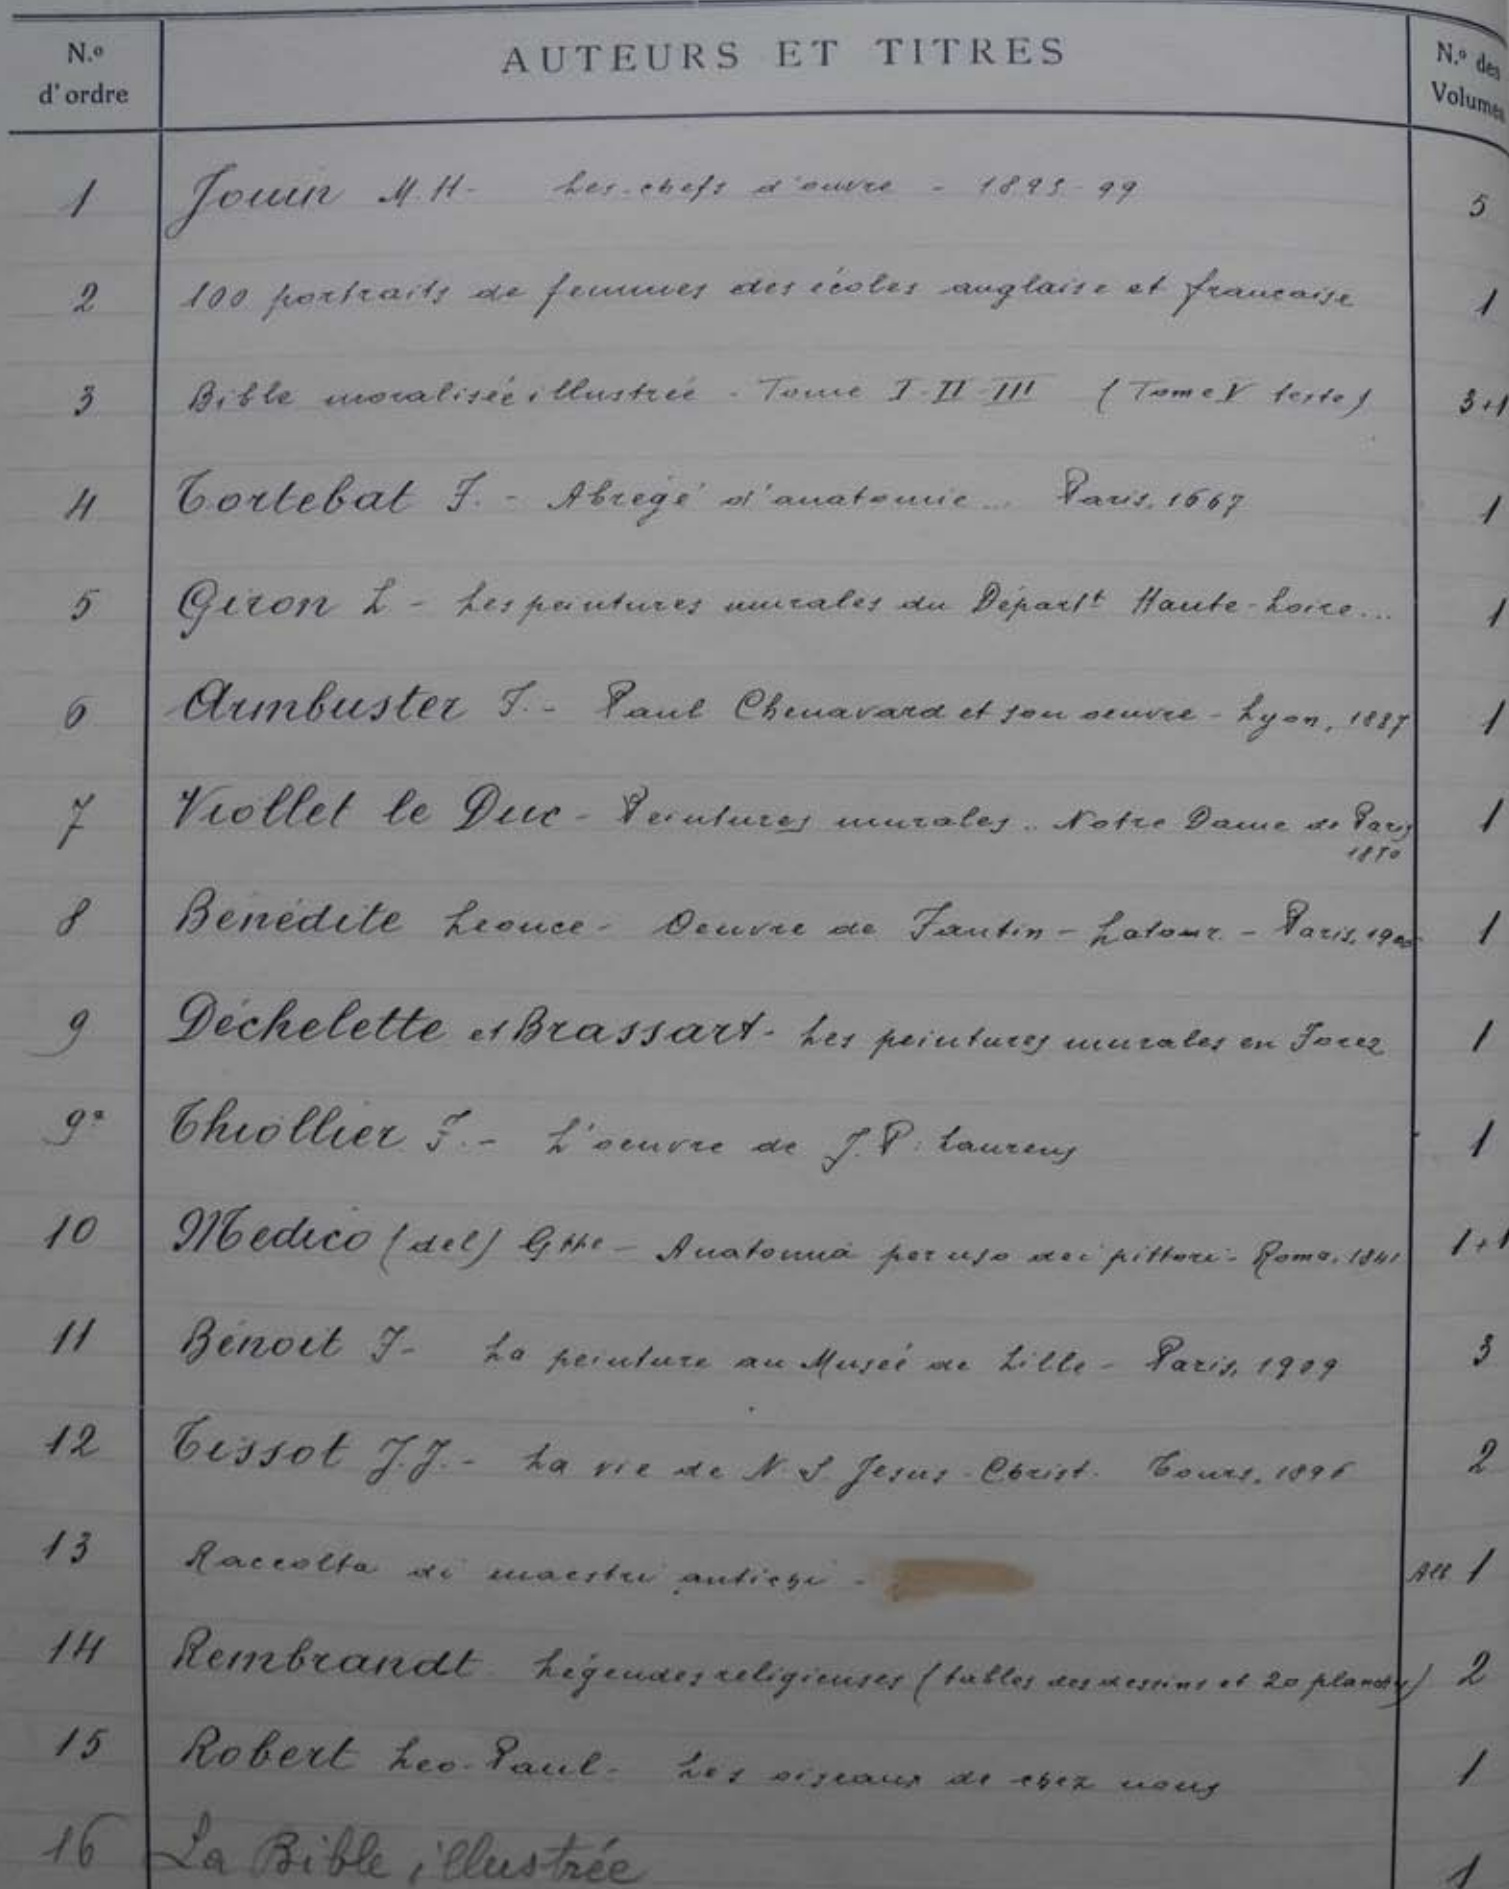 N.o d'ordre AUTEURS ET TITRES N.o des Volumes
1 Jouin M.H- Les chefs d'œuvre - 1895-99 5
2 100 portraits de femmes des écoles anglaise et francaise 1
3 Bible moralisée illustrée - Tome I-II-III (Tome V texte) 3+1
4 Tortebat F. - Abregé d'anatomie... Paris, 1667 1
5 Giron L - Les peintures murales du Départt Haute-Loire... 1
6 Armbuster F. - Paul Chenavard et son oeuvre - Lyon, 1887 1
7 Viollet le Duc - Peintures murales.. Notre Dame de Paris 1
1870
8 Bénédite Leonce - Oeuvre de Fantin-Latour - Paris, 1906 1
9 Déchelette et Brassart - Les peintures murales en Forez 1
9a Thiollier F. - L'oeuvre de J.P. Laurens 1
10 Medico (del) Gppe - Anatomia per uso dei pittori - Roma, 1841 1+1
11 Benoit F- La peinture au Musée de Lille - Paris, 1909 3
12 Tissot J.J. - La vie de N.S. Jesus-Christ. Tours, 1896 2
13 Raccolta di maestri antichi - All 1
14 Rembrandt Légendes religieuses (tables des dessins et 20 planches) 2
15 Robert Leo-Paul - Les oiseaux de chez nous 1
16 La Bible illustrée 1